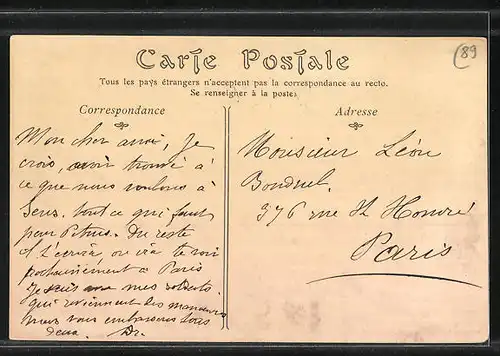 (89
Carte Postale
Tous les pays étrangers n'acceptent pas la correspondance au recto.
Se renseigner à la poste.
Correspondance
Adresse
Mon cher ami, Je
crois, avoir trouvé à
ce que nous voulons à
Sens. tout ce qui faut
pour Du reste
t'écrira, ou ira te voir
prochainement à Paris
Je suis mes soldats
qui reviennent des manœuvres
nous vous embrassons tous
deux.
Monsieur Léon
376 rue St Honoré
Paris